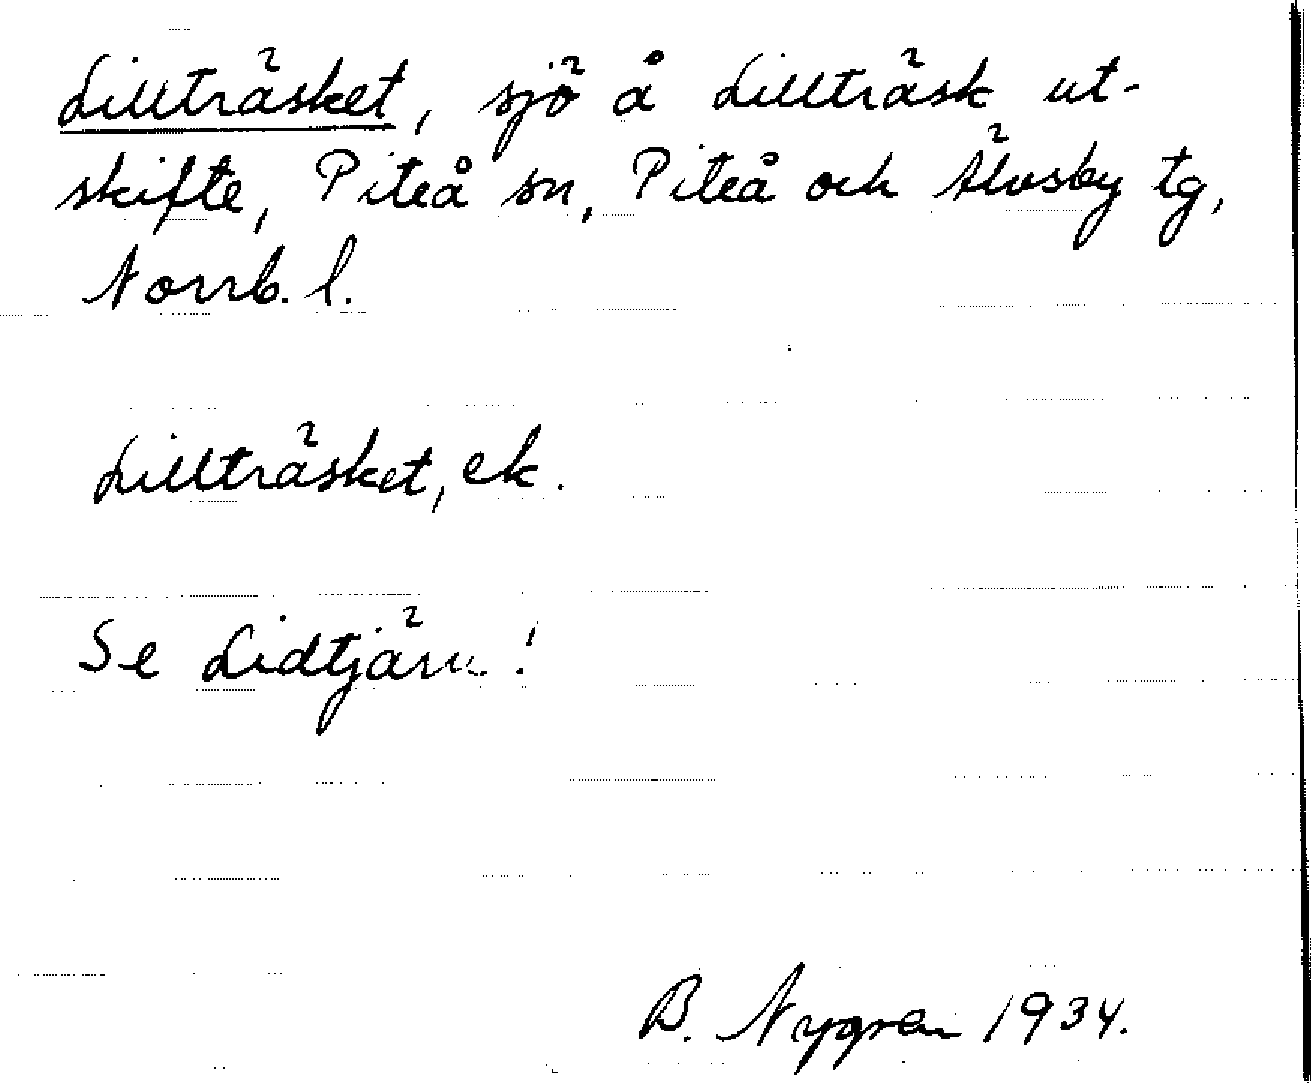 Lillträsket, sjö å Lillträsk ut-
skifte, Piteå sn, Piteå och Älvsby tg,
Norrb. l.
Lillträsket, ek.
Se Lidtjärn!
B. Nygren 1934.